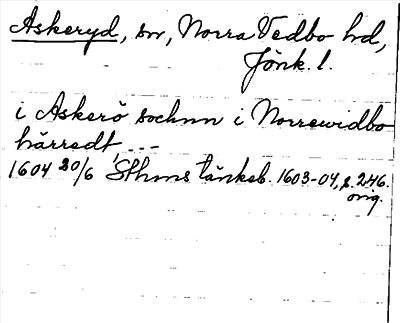 Askeryd, sn, Norra Vedbo hd,
Jönk. l.
i Askerö sochnn i Norrewidbo
härredt ---
1604 20/6 Sthms tänkeb. 1603-04, s. 246.
orig.